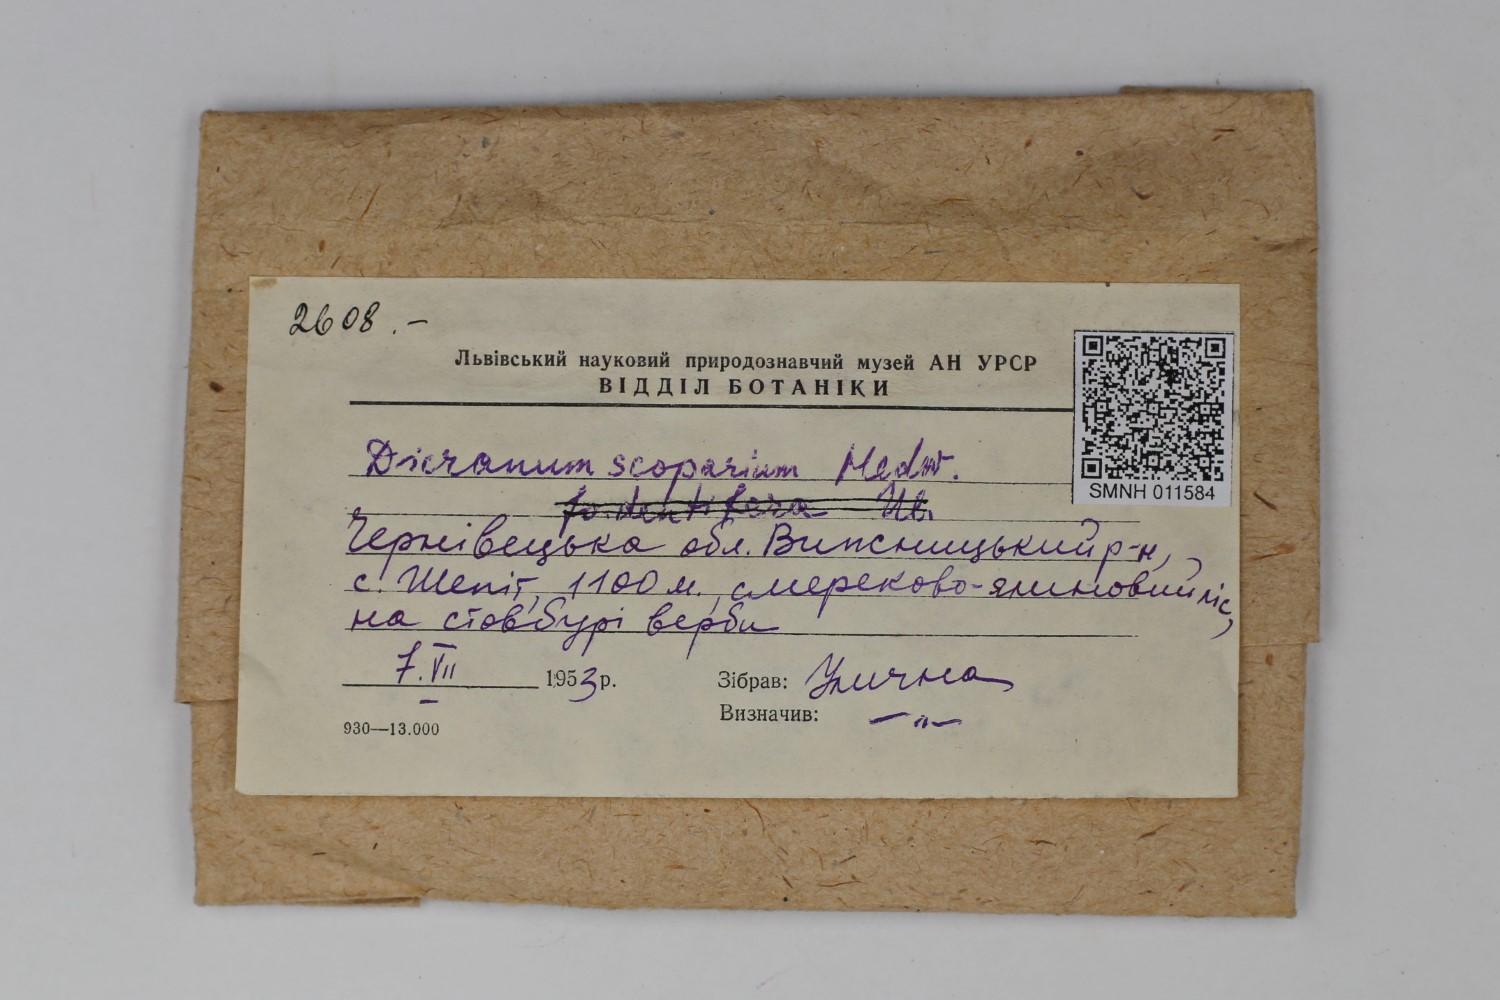 2608.-
Львівський науковий природознавчий музей АН УРСР
ВІДДІЛ БОТАНІКИ
SMNH 011584
Dicranum scoparium Hedw.
fo. dentifera Ub.
Чернівецька обл. Вижницький р-н,
с. Шепіт, 1100 м., смереково-ялиновий ліс,
на стовбурі верби
7.VII 1953 р. Зібрав: Улична
Визначив: -"-
930—13.000